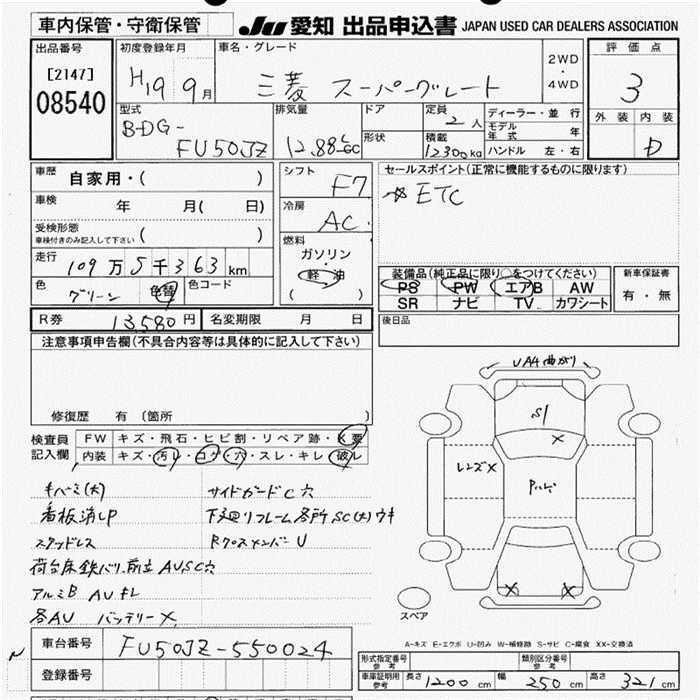 車内保管・守衛保管
JU 愛知 出品申込書 JAPAN USED CAR DEALERS ASSOCIATION
出品番号
[2147]
08540
初度登録年月
H19 9月
車名・グレード
三菱 スーパーグレート
2WD
・
4WD
評価点
3
外装 内装
D
型式
B-DG-
FU50JZ
排気量
12.88 L cc
ドア
形状
定員
2 人
積載
12300kg
ディーラー・並行
モデル年式 年
ハンドル 左・右
車歴 自家用・( )
車検 年 月( 日)
受検形態
車検付きのみ記入して下さい ( )
走行 109万5千363km
色 グリーン 色替 色コード
R券 13,580円 名変期限 月 日
シフト F7
冷房 AC
燃料
ガソリン
・
軽油
( )
セールスポイント(正常に機能するものに限ります)
☆ETC
装備品(純正品に限り○をつけてください)
PS PW エアB AW
SR ナビ TV カワシート
新車保証書
有・無
後日品
注意事項申告欄(不具合内容等は具体的に記入して下さい)
修復歴 有(箇所 )
検査員記入欄
FW キズ・飛石・ヒビ割・リペア跡・X要
内装 キズ・汚レ・コゲ・穴・スレ・キレ・破レ
キバミ(大) サイドガードC穴
看板消しP 下廻りフレーム各所SC(大)ウキ
スタッドレス Rクロスメンバー U
荷台床鉄バリ、前立AUSC穴
アルミB AUキレ
各AU バッテリーX
UA4曲がり
S1
X
レンズX
Pハゲ
X X
スペア
A-キズ E-エクボ U-凹み W-補修跡 S-サビ C-腐食 XX-交換済
車台番号 FU50JZ-550024
登録番号
形式指定番号 参考
類別区分番号 参考
車庫証明用 参考 長さ 1200cm 幅 250cm 高さ 321cm